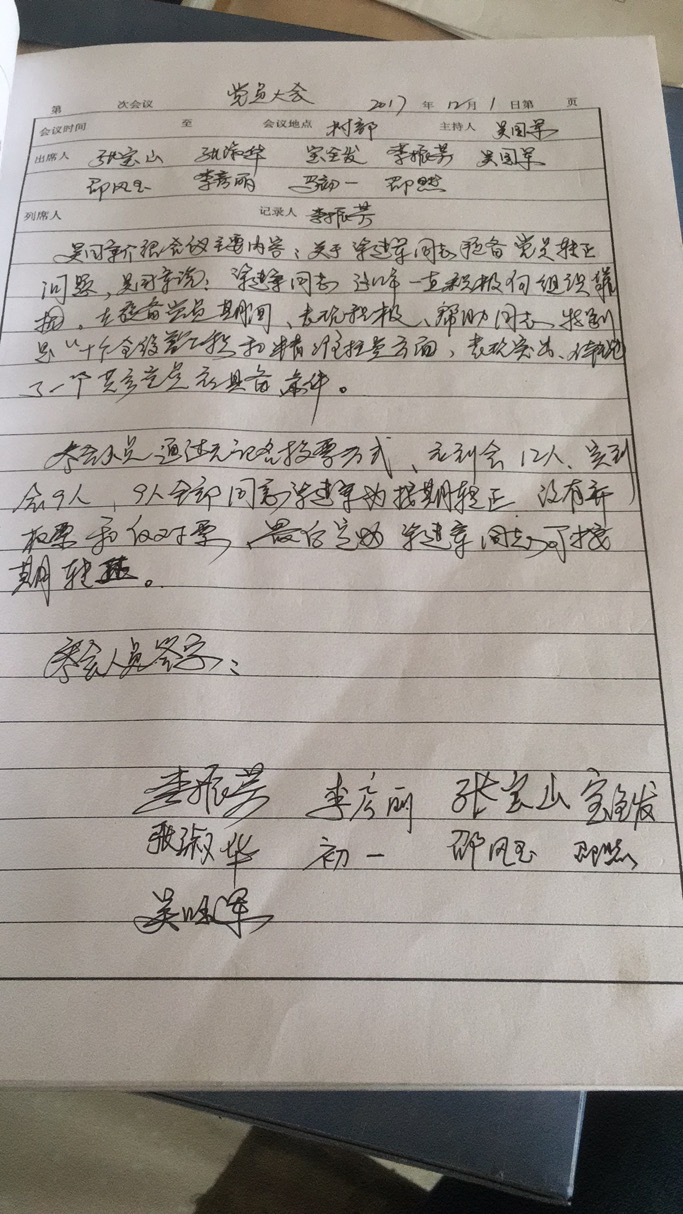 第 次会议 党员大会 2017 年 12 月 1 日第 页
会议时间 至 会议地点 村部 主持人 吴国军
出席人 张宝山 张淑华 宝全发 李振芳 吴国军
邵凤玉 李彦丽 初一 邵然
列席人 记录人 李振芳
吴国军介绍会议主要内容：关于 建军同志预备党员转正
问题，吴国军说： 建军同志 一直积极向组织靠
拢，在预备党员期间，表现积极、帮助同志，特别
是"十个全覆盖"工程和精准扶贫方面，表现突出、
了一个共产党员应具备条件。
参会人员通过无记名投票方式、应到会12人、实到
会9人，9人全部同意 建军为按期转正 没有弃
权票和反对票，最后 建军同志可按
期转正。
参会人员签字：
李振芳 李彦丽 张宝山 宝全发
张淑华 初一 邵凤玉 邵然
吴国军